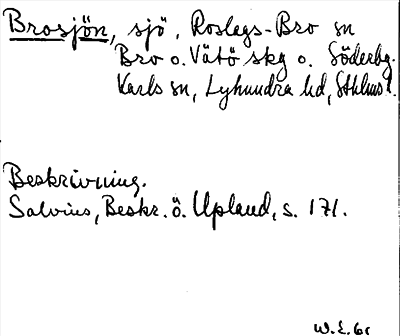 Brosjön, sjö, Roslags-Bro sn
Bro o. Vätö skg o. Söderbg.
Karls sn, Lyhundra hd, Sthlms l.
Beskrivning.
Salvius, Beskr. ö. Upland, s. 171.
W.E. 61